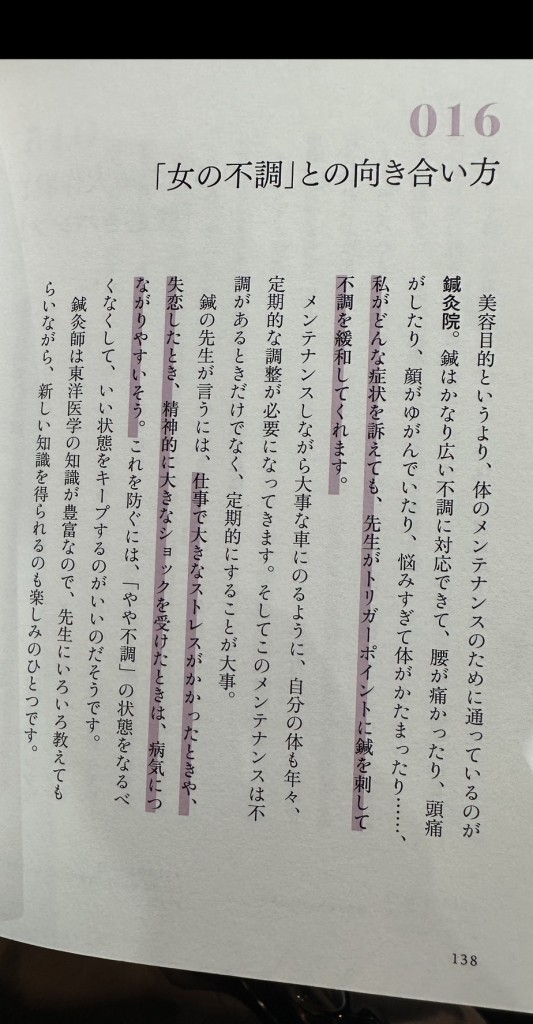 016
「女の不調」との向き合い方
美容目的というより、体のメンテナンスのために通っているのが
鍼灸院。鍼はかなり広い不調に対応できて、腰が痛かったり、頭痛
がしたり、顔がゆがんでいたり、悩みすぎて体がかたまったり……、
私がどんな症状を訴えても、先生がトリガーポイントに鍼を刺して
不調を緩和してくれます。
メンテナンスしながら大事な車にのるように、自分の体も年々、
定期的な調整が必要になってきます。そしてこのメンテナンスは不
調があるときだけでなく、定期的にすることが大事。
鍼の先生が言うには、仕事で大きなストレスがかかったときや、
失恋したとき、精神的に大きなショックを受けたときは、病気につ
ながりやすいそう。これを防ぐには、「やや不調」の状態をなるべ
くなくして、いい状態をキープするのがいいのだそうです。
鍼灸師は東洋医学の知識が豊富なので、先生にいろいろ教えても
らいながら、新しい知識を得られるのも楽しみのひとつです。
138